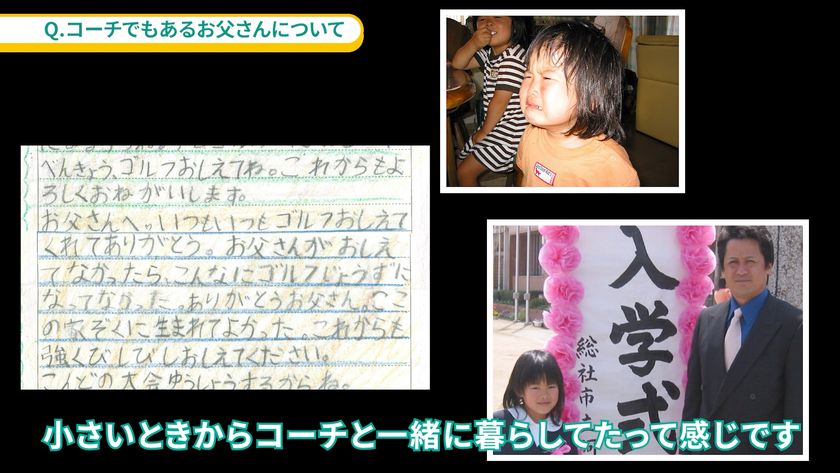 Q.コーチでもあるお父さんについて
べんきょう、ゴルフおしえてね。これからもよ
ろしくおねがいします。
お父さんへ。いつもいつもゴルフおしえて
くれてありがとう。お父さんがおしえ
てなかったら、こんなにゴルフじょうずに
なってなかった。ありがとうお父さん。ここ
のかぞくに生まれてよかった。これからも
強くびしびしおしえてください。
こんどの大会ゆうしょうするからね。
入学式
総社市立
小さいときからコーチと一緒に暮らしてたって感じです